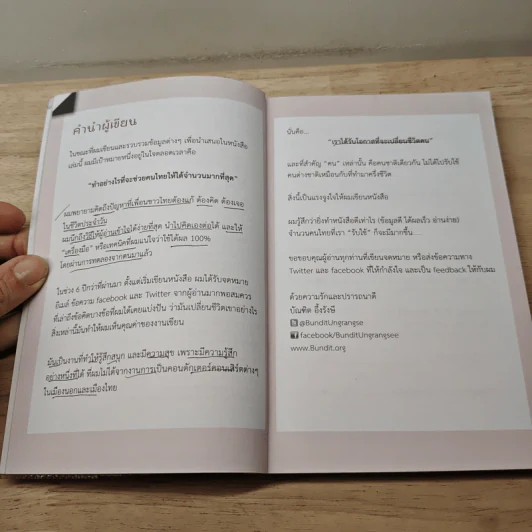 คำนำผู้เขียน
ในขณะที่ผมเขียนและรวบรวมข้อมูลต่างๆ เพื่อนำเสนอในหนังสือ
เล่มนี้ ผมมีเป้าหมายหนึ่งอยู่ในใจตลอดเวลาคือ
"ทำอย่างไรที่จะช่วยคนไทยให้ได้จำนวนมากที่สุด"
ผมพยายามคิดถึงปัญหาที่เพื่อนชาวไทยต้องแก้ ต้องคิด ต้องเจอ
ในชีวิตประจำวัน
ผมนึกถึงวิธีให้ผู้อ่านเข้าใจได้ง่ายที่สุด นำไปคิดเองต่อได้ และให้
"เครื่องมือ" หรือเทคนิคที่ผมแน่ใจว่าใช้ได้ผล 100%
โดยผ่านการทดลองจากตนมาแล้ว
ในช่วง 6 ปีกว่าที่ผ่านมา ตั้งแต่เริ่มเขียนหนังสือ ผมได้รับจดหมาย
อีเมล์ ข้อความ facebook และ Twitter จากผู้อ่านมาพอสมควร
ที่เล่าถึงข้อคิดบางข้อที่ผมได้เคยแบ่งปัน ว่ามันเปลี่ยนชีวิตเขาอย่างไร
สิ่งเหล่านี้มันทำให้ผมเห็นคุณค่าของงานเขียน
มันเป็นงานที่ทำให้รู้สึกสนุก และมีความสุข เพราะมีความรู้สึก
อย่างหนึ่งที่ได้ ที่ผมไม่ได้จากงานการเป็นคอนดักเตอร์คอนเสิร์ตต่างๆ
ในเมืองนอกและเมืองไทย
นั่นคือ...
"เราได้รับโอกาสที่จะเปลี่ยนชีวิตคน"
และที่สำคัญ "คน" เหล่านั้น คือคนชาติเดียวกัน ไม่ได้ไปรับใช้
คนต่างชาติเหมือนกับที่ทำมาครึ่งชีวิต
สิ่งนี้เป็นแรงจูงใจให้ผมเขียนหนังสือ
ผมรู้สึกว่ายิ่งทำหนังสือดีเท่าไร (ข้อมูลดี ได้ผลเร็ว อ่านง่าย)
จำนวนคนไทยที่เรา "รับใช้" ก็จะมีมากขึ้น
ขอขอบคุณผู้อ่านทุกท่านที่เขียนจดหมาย หรือส่งข้อความทาง
Twitter และ facebook ที่ให้กำลังใจ และเป็น feedback ให้กับผม
ด้วยความรักและปรารถนาดี
บัณฑิต อึ้งรังษี
@BunditUngrangse
facebook/BunditUngrangsee
www.Bundit.org